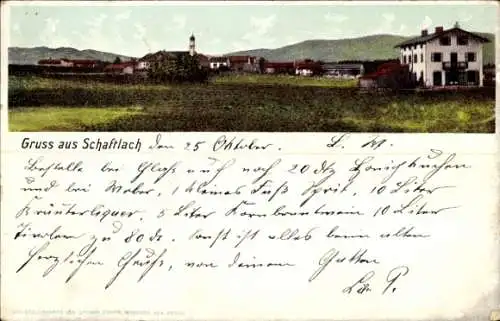 Gruss aus Schaftlach den 25 Oktober. L. M.
Bestelle bei Glass auf noch 20 dtz Honigkuchen
und bei Weber, 1 kleines Fass Sprit, 10 Liter
Kräuterliquer, 5 Liter Kornbrantwein 10 Liter
Tiroler zu 80 dr. Sonst ist alles beim alten
Herzlichen Gruss, von deinem Gatten